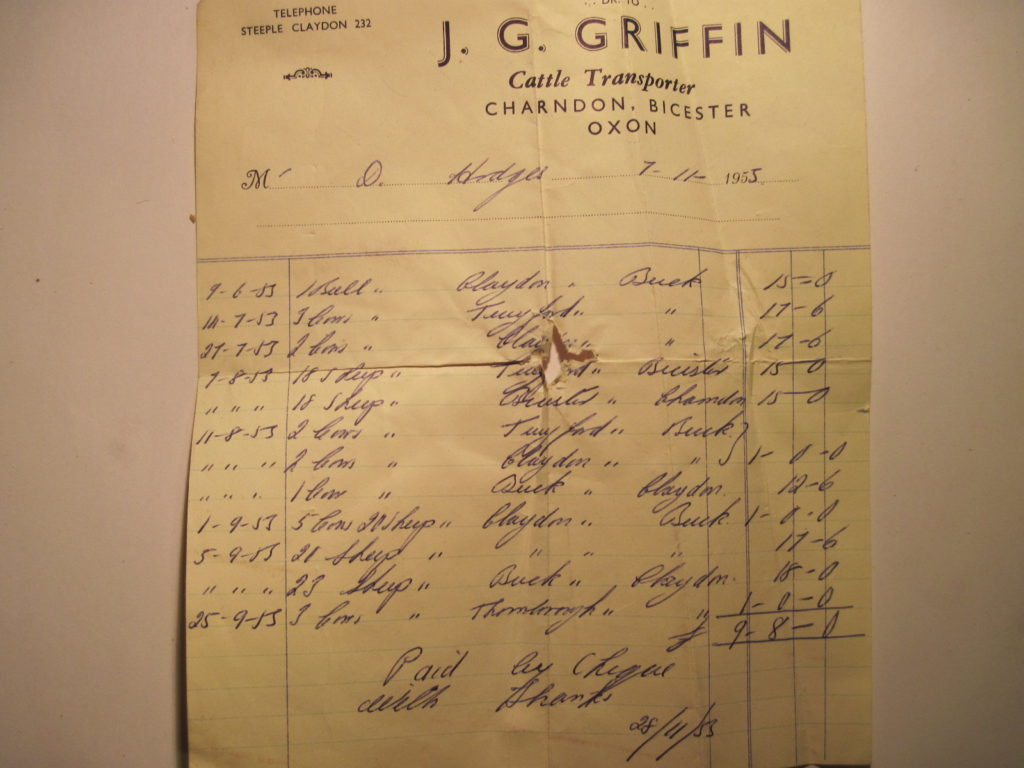 TELEPHONE
STEEPLE CLAYDON 232
DR. TO
J. G. GRIFFIN
Cattle Transporter
CHARNDON, BICESTER
OXON
Mr D. Hodges 7-11-1953
9-6-53 1 Bull " Claydon " Buck 15=0
14-7-53 3 Cows " Twyford " " 17-6
27-7-53 2 Cows " Clay " " 17-6
7-8-53 18 Sheep " " Bicister 15-0
" " " 18 Sheep " Bicister " Charndon 15-0
11-8-53 2 Cows " Twyford " Buck }
" " " 2 Cows " Claydon " " } 1-0-0
" " " 1 Cow " Buck " Claydon. 12-6
1-9-53 5 Cows 20 Sheep " Claydon " Buck. 1-0-0
5-9-53 20 Sheep " " " " 17-6
" " " 23 Sheep " Buck " Claydon. 18-0
25-9-53 3 Cows " Thornborough " " 1-0-0
£ 9-8-0
Paid by Cheque
With Thanks
28/11/53